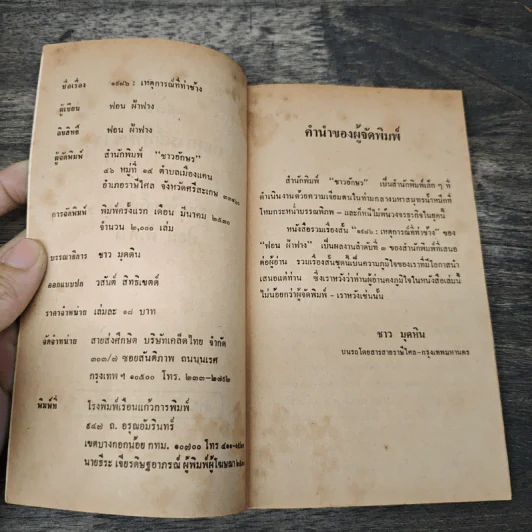 ชื่อเรื่อง ๑๙๘๖ : เหตุการณ์ที่ท่าช้าง
ผู้เขียน ฟอน ฝ้าฟาง
ลิขสิทธิ์ ฟอน ฝ้าฟาง
ผู้จัดพิมพ์ สำนักพิมพ์ "ชาวอักษร"
๔๖ หมู่ที่ ๑๔ ตำบลเมืองแคน
อำเภอราษีไศล จังหวัดศรีสะเกษ
การจัดพิมพ์ พิมพ์ครั้งแรก เดือน มีนาคม ๒๕๓๐
จำนวน ๒,๐๐๐ เล่ม
บรรณาธิการ ชาว มูดดิน
ออกแบบปก วสันต์ สิทธิเขตต์
ราคาจำหน่าย เล่มละ ๑๘ บาท
จัดจำหน่าย สายส่งศึกษิต บริษัทเคล็ดไทย จำกัด
๓๐๓/๗ ซอยสันติภาพ ถนนนเรศ
กรุงเทพ ฯ ๑๐๕๐๐ โทร. ๒๓๓-๒๗๙๒
พิมพ์ที่ โรงพิมพ์เรือนแก้วการพิมพ์
๙๔๗ ถ. อรุณอมรินทร์
เขตบางกอกน้อย กทม. ๑๐๗๐๐ โทร
นายธีระ เจียรดิษฐอาภรณ์ ผู้พิมพ์ผู้โฆษณา
คำนำของผู้จัดพิมพ์
สำนักพิมพ์ "ชาวอักษร" เป็นสำนักพิมพ์เล็ก ๆ ที่
ดำเนินงานด้วยความเจียมตนในท่ามกลางมหาสมุทรน้ำหมึกที่
โหมกระหน่ำบรรณพิภพ – และก็หนีไม่พ้นวงจรธุรกิจในยุคนี้
หนังสือรวมเรื่องสั้น "๑๙๘๖ : เหตุการณ์ที่ท่าช้าง" ของ
"ฟอน ฝ้าฟาง" เป็นผลงานลำดับที่ ๓ ของสำนักพิมพ์ที่เสนอ
ต่อผู้อ่าน รวมเรื่องสั้นชุดนี้เป็นความภูมิใจของเราที่มีโอกาสนำ
เสนอแด่ท่าน ซึ่งเราหวังว่าท่านผู้อ่านคงภูมิใจในหนังสือเล่มนี้
ไม่น้อยกว่าผู้จัดพิมพ์ – เราหวังเช่นนั้น
ชาว มูดหิน
บนรถโดยสารสายราษีไศล-กรุงเทพมหานคร